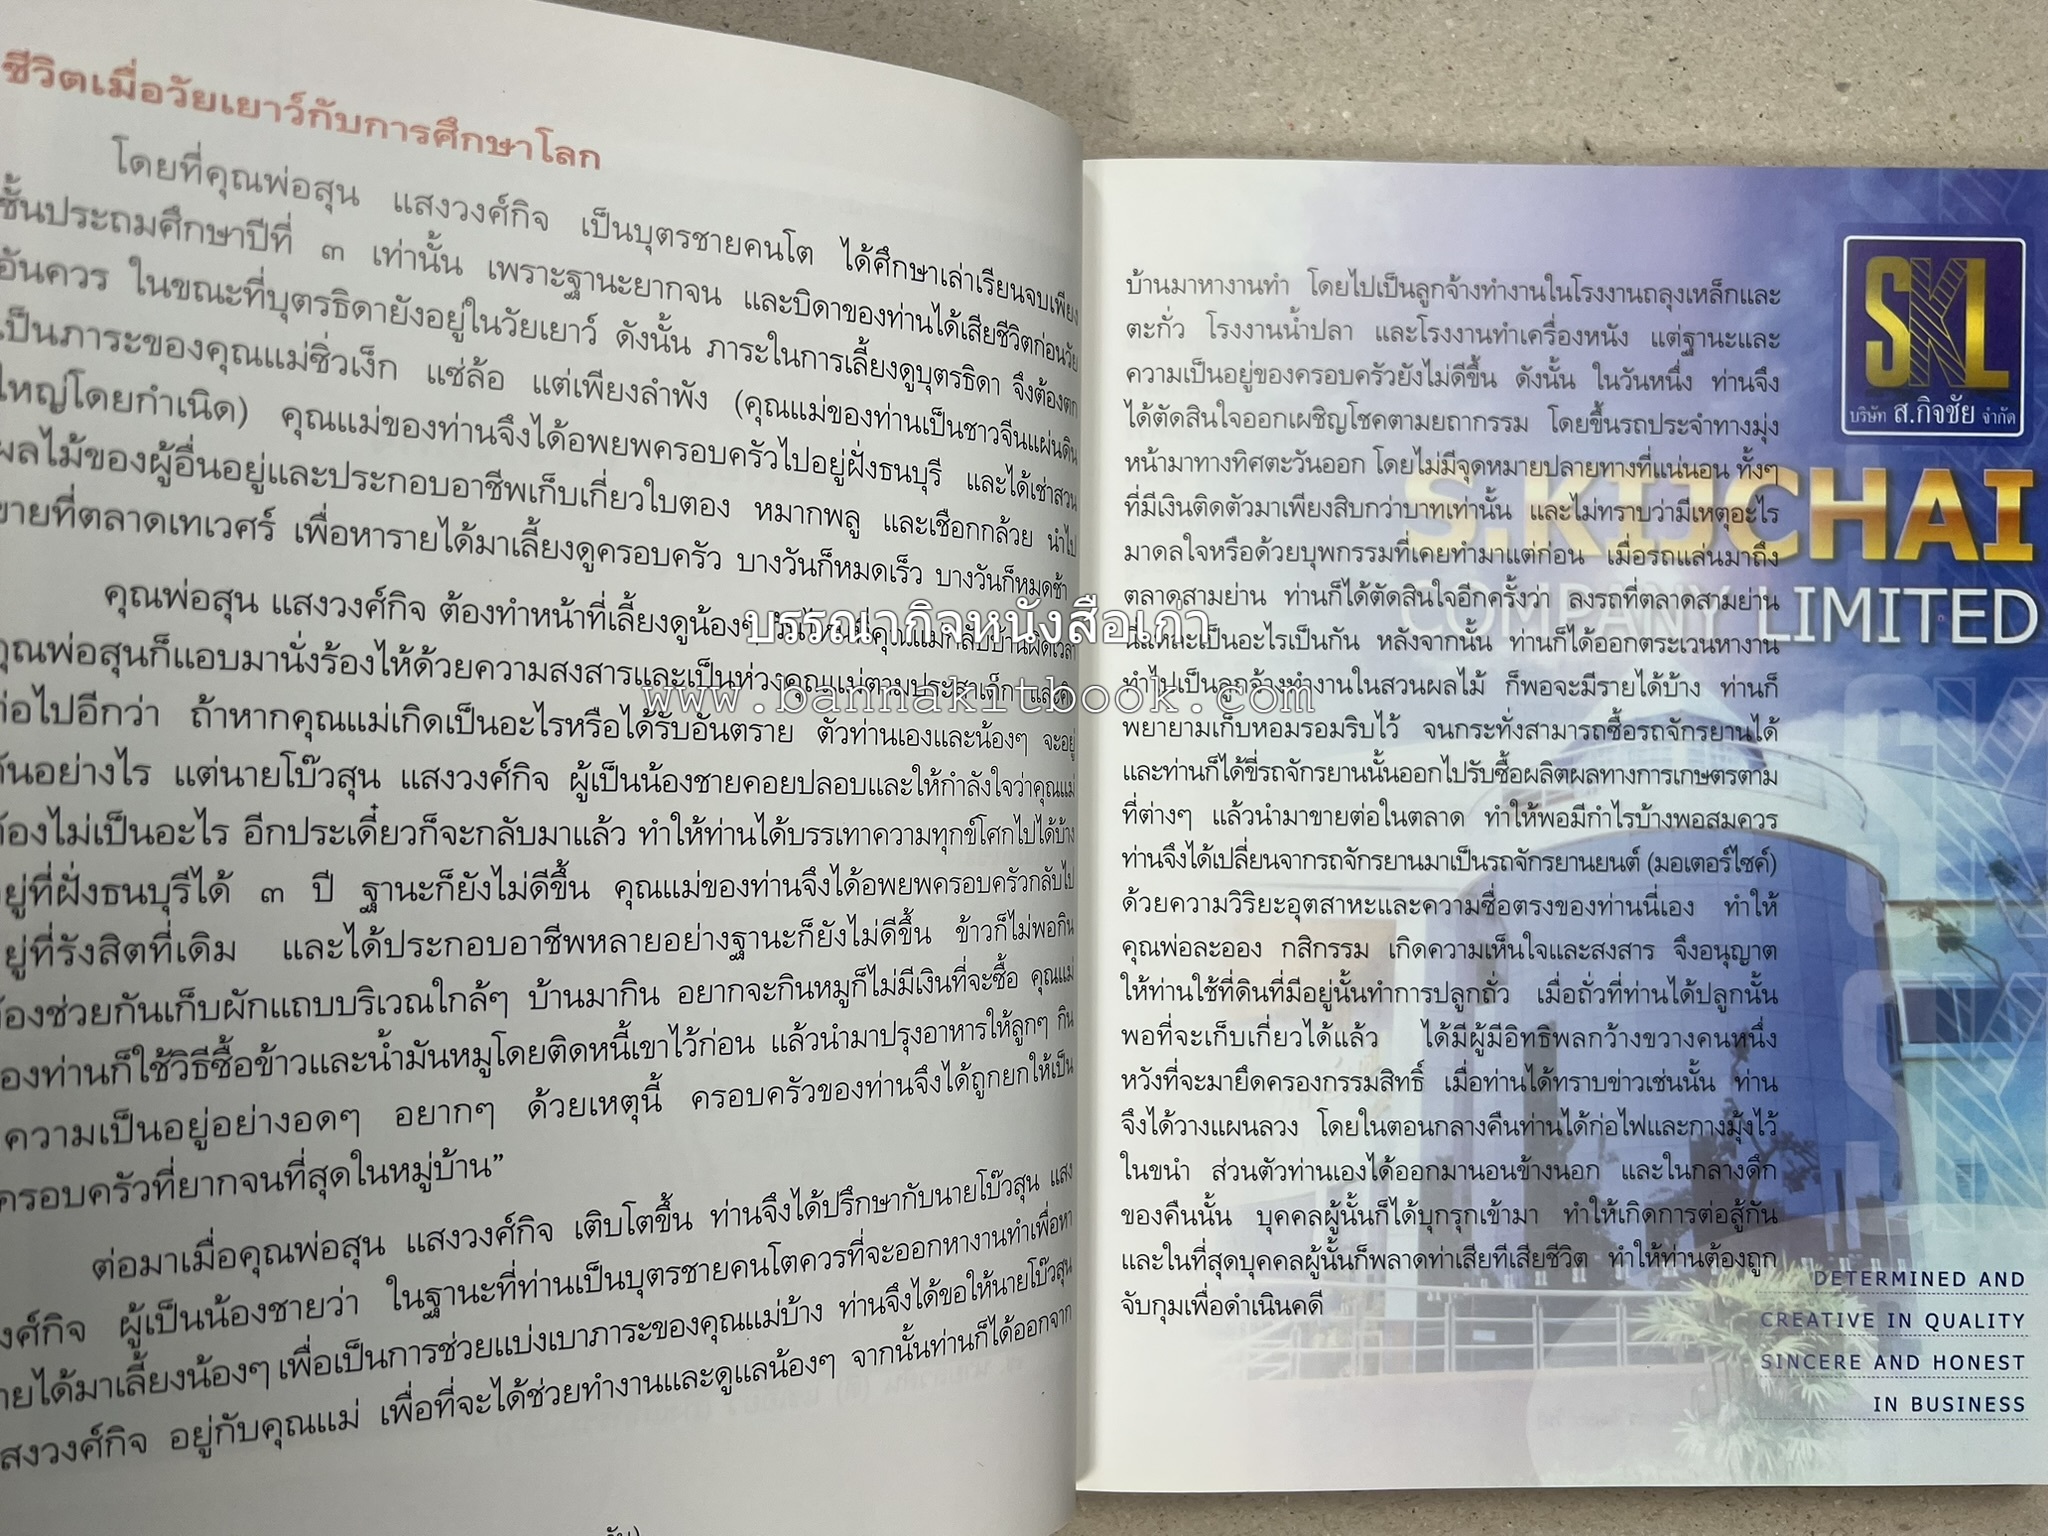 ชีวิตเมื่อวัยเยาว์กับการศึกษาโลก
โดยที่คุณพ่อสุน แสงวงศ์กิจ เป็นบุตรชายคนโต ได้ศึกษาเล่าเรียนจบเพียง
ชั้นประถมศึกษาปีที่ ๓ เท่านั้น เพราะฐานะยากจน และบิดาของท่านได้เสียชีวิตก่อนวัย
อันควร ในขณะที่บุตรธิดายังอยู่ในวัยเยาว์ ดังนั้น ภาระในการเลี้ยงดูบุตรธิดา จึงต้องตก
เป็นภาระของคุณแม่ซิ่วเง็ก แซ่ล้อ แต่เพียงลำพัง (คุณแม่ของท่านเป็นชาวจีนแผ่นดิน
ใหญ่โดยกำเนิด) คุณแม่ของท่านจึงได้อพยพครอบครัวไปอยู่ฝั่งธนบุรี และได้เช่าสวน
ผลไม้ของผู้อื่นอยู่และประกอบอาชีพเก็บเกี่ยวใบตอง หมากพลู และเชือกกล้วย นำไป
ขายที่ตลาดเทเวศร์ เพื่อหารายได้มาเลี้ยงดูครอบครัว บางวันก็หมดเร็ว บางวันก็หมดช้า
คุณพ่อสุน แสงวงศ์กิจ ต้องทำหน้าที่เลี้ยงดูน้องๆ คุณแม่กลับบ้านผิดเวลา
คุณพ่อสุนก็แอบมานั่งร้องไห้ด้วยความสงสารและเป็นห่วงคุณแม่ตามประสาเด็ก และคิด
ต่อไปอีกว่า ถ้าหากคุณแม่เกิดเป็นอะไรหรือได้รับอันตราย ตัวท่านเองและน้องๆ จะอยู่
กันอย่างไร แต่นายโบ๊วสุน แสงวงศ์กิจ ผู้เป็นน้องชายคอยปลอบและให้กำลังใจว่าคุณแม่
ต้องไม่เป็นอะไร อีกประเดี๋ยวก็จะกลับมาแล้ว ทำให้ท่านได้บรรเทาความทุกข์โศกไปได้บ้าง
อยู่ที่ฝั่งธนบุรีได้ ๓ ปี ฐานะก็ยังไม่ดีขึ้น คุณแม่ของท่านจึงได้อพยพครอบครัวกลับไป
อยู่ที่รังสิตที่เดิม และได้ประกอบอาชีพหลายอย่างฐานะก็ยังไม่ดีขึ้น ข้าวก็ไม่พอกิน
ต้องช่วยกันเก็บผักแถบบริเวณใกล้ๆ บ้านมากิน อยากจะกินหมูก็ไม่มีเงินที่จะซื้อ คุณแม่
ของท่านก็ใช้วิธีซื้อข้าวและน้ำมันหมูโดยติดหนี้เขาไว้ก่อน แล้วนำมาปรุงอาหารให้ลูกๆ กิน
ความเป็นอยู่อย่างอดๆ อยากๆ ด้วยเหตุนี้ ครอบครัวของท่านจึงได้ถูกยกให้เป็น
ครอบครัวที่ยากจนที่สุดในหมู่บ้าน”
ต่อมาเมื่อคุณพ่อสุน แสงวงศ์กิจ เติบโตขึ้น ท่านจึงได้ปรึกษากับนายโบ๊วสุน แสง
วงศ์กิจ ผู้เป็นน้องชายว่า ในฐานะที่ท่านเป็นบุตรชายคนโตควรที่จะออกหางานทำเพื่อหา
รายได้มาเลี้ยงน้องๆ เพื่อเป็นการช่วยแบ่งเบาภาระของคุณแม่บ้าง ท่านจึงได้ขอให้นายโบ๊วสุน
แสงวงศ์กิจ อยู่กับคุณแม่ เพื่อที่จะได้ช่วยทำงานและดูแลน้องๆ จากนั้นท่านก็ได้ออกจาก
บ้านมาหางานทำ โดยไปเป็นลูกจ้างทำงานในโรงงานถลุงเหล็กและ
ตะกั่ว โรงงานน้ำปลา และโรงงานทำเครื่องหนัง แต่ฐานะและ
ความเป็นอยู่ของครอบครัวยังไม่ดีขึ้น ดังนั้น ในวันหนึ่ง ท่านจึง
ได้ตัดสินใจออกเผชิญโชคตามยถากรรม โดยขึ้นรถประจำทางมุ่ง
หน้ามาทางทิศตะวันออก โดยไม่มีจุดหมายปลายทางที่แน่นอน ทั้งๆ
ที่มีเงินติดตัวมาเพียงสิบกว่าบาทเท่านั้น และไม่ทราบว่ามีเหตุอะไร
มาดลใจหรือด้วยบุพกรรมที่เคยทำมาแต่ก่อน เมื่อรถแล่นมาถึง
ตลาดสามย่าน ท่านก็ได้ตัดสินใจอีกครั้งว่า ลงรถที่ตลาดสามย่าน
นี่แหละเป็นอะไรเป็นกัน หลังจากนั้น ท่านก็ได้ออกตระเวนหางาน
ทำไปเป็นลูกจ้างทำงานในสวนผลไม้ ก็พอจะมีรายได้บ้าง ท่านก็
พยายามเก็บหอมรอมริบไว้ จนกระทั่งสามารถซื้อรถจักรยานได้
และท่านก็ได้ขี่รถจักรยานนั้นออกไปรับซื้อผลิตผลทางการเกษตรตาม
ที่ต่างๆ แล้วนำมาขายต่อในตลาด ทำให้พอมีกำไรบ้างพอสมควร
ท่านจึงได้เปลี่ยนจากรถจักรยานมาเป็นรถจักรยานยนต์ (มอเตอร์ไซค์)
ด้วยความวิริยะอุตสาหะและความซื่อตรงของท่านนี่เอง ทำให้
คุณพ่อละออง กสิกรรม เกิดความเห็นใจและสงสาร จึงอนุญาต
ให้ท่านใช้ที่ดินที่มีอยู่นั้นทำการปลูกถั่ว เมื่อถั่วที่ท่านได้ปลูกนั้น
พอที่จะเก็บเกี่ยวได้แล้ว ได้มีผู้มีอิทธิพลกว้างขวางคนหนึ่ง
หวังที่จะมายึดครองกรรมสิทธิ์ เมื่อท่านได้ทราบข่าวเช่นนั้น ท่าน
จึงได้วางแผนลวง โดยในตอนกลางคืนท่านได้ก่อไฟและกางมุ้งไว้
ในขนำ ส่วนตัวท่านเองได้ออกมานอนข้างนอก และในกลางดึก
ของคืนนั้น บุคคลผู้นั้นก็ได้บุกรุกเข้ามา ทำให้เกิดการต่อสู้กัน
และในที่สุดบุคคลผู้นั้นก็พลาดท่าเสียทีเสียชีวิต ทำให้ท่านต้องถูก
จับกุมเพื่อดำเนินคดี
SKL
บริษัท ส.กิจชัย จำกัด
S.KIJCHAI
COMPANY LIMITED
DETERMINED AND
CREATIVE IN QUALITY
SINCERE AND HONEST
IN BUSINESS
บรรณากิจหนังสือเก่า
www.bannakitbook.com